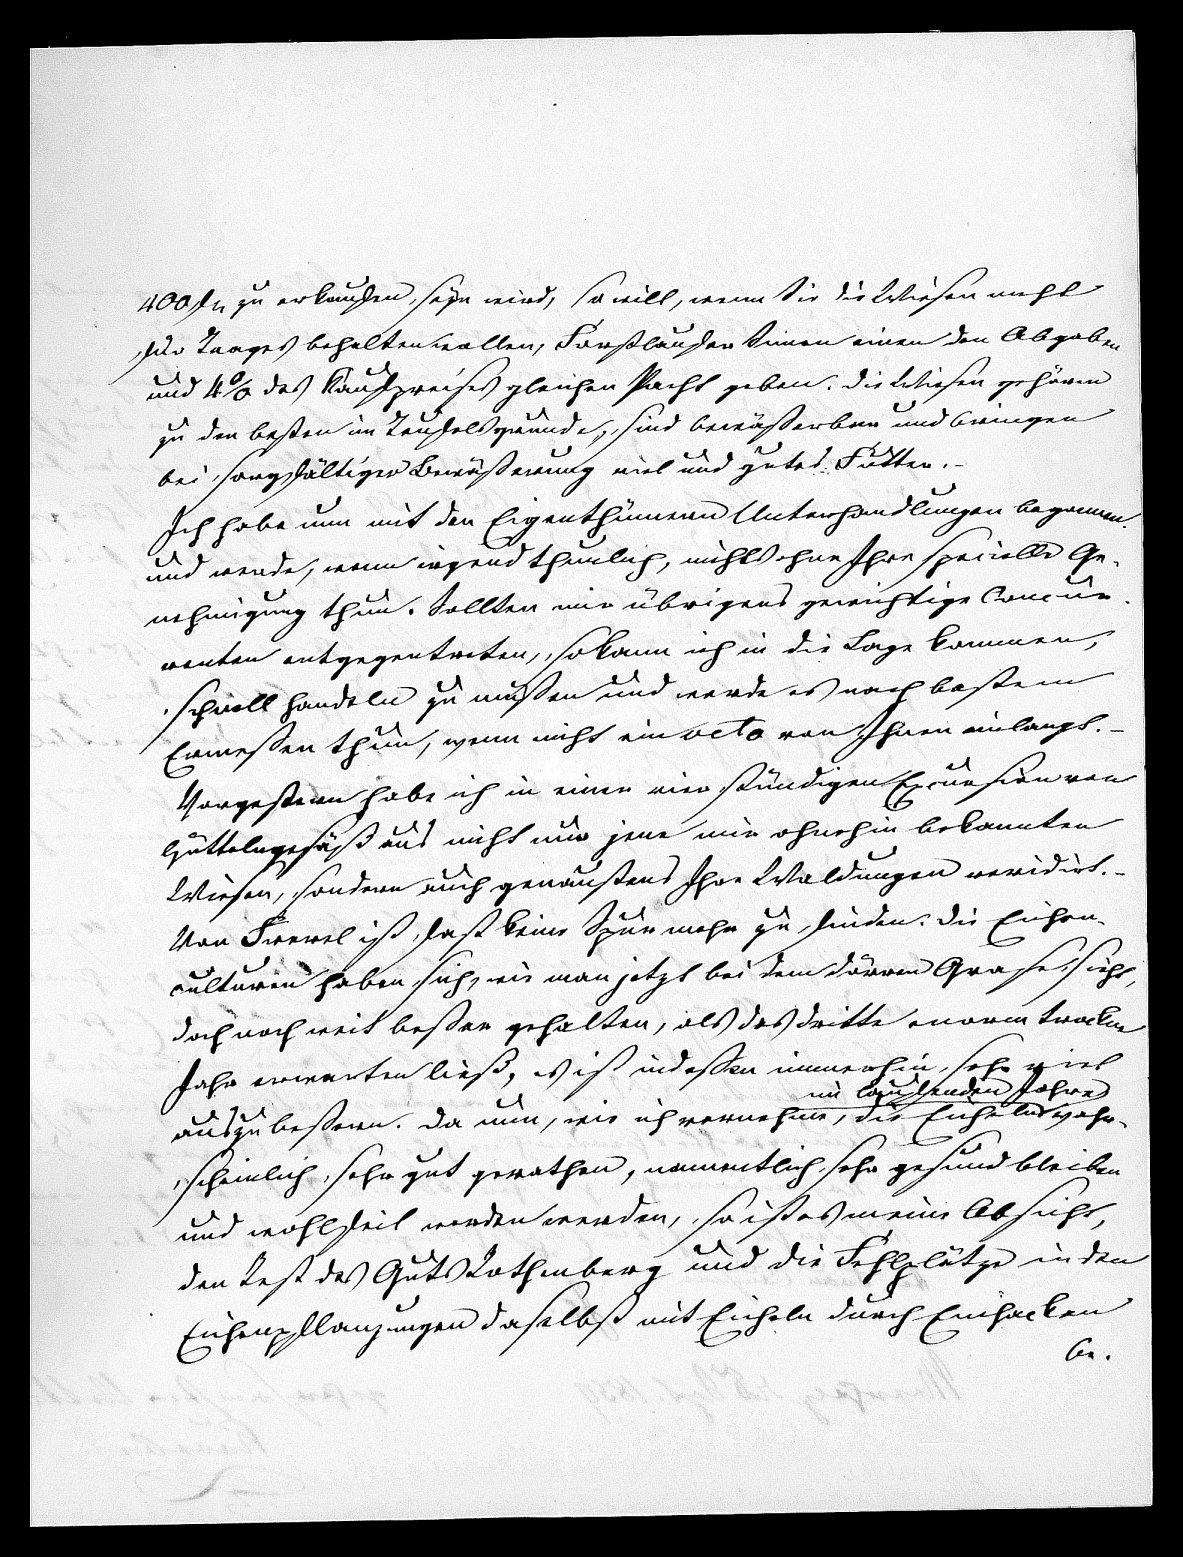 400 fl zu erkaufen seyn wird, so will, wenn Sie die Wiesen nicht
behalten wollen, Forstläufer Simon einen den Abgaben
und 4 % des Kaufpreises gleichen Pacht geben. Die Wiesen gehören
zu den besten im Teufelsgrunde, sind bewäßerbar und bringen
bei sorgfältiger Bewäßerung viel und gutes Futter. –
Ich habe nun mit den Eigenthümern Unterhandlungen begonnen
und werde, wenn irgend thunlich, nichts ohne Ihre specielle Ge-
nehmigung thun. Sollten mir übrigens gewichtige Concur-
renten entgegentreten, so kann ich in die Lage kommen,
schnell handeln zu müßen und werde es nach bestem
Ermeßen thun, wenn nicht ein veto von Ihnen einlangt. –
Vorgestern habe ich in einer vier stündigen Excursion von
Hüttelngesäß aus nicht nur jene mir ohnehin bekannten
Wiesen, sondern auch genaustens Ihre Waldungen revidirt. –
Von Frevel ist fast keine Spur mehr zu finden. Die Eichen-
culturen haben sich, wie man jetzt bei dem dürren Grase sieht,
doch noch weit beßer gehalten, als das dritte enorm trockne
Jahr erwarten ließ, es ist indeßen immerhin sehr viel
im laufenden Jahre
auszubeßern. Da nun, wie ich vernehme, die Eicheln wahr-
scheinlich sehr gut gerathen, namentlich sehr gesund bleiben
und wohlfeil werden werden, so ist es meine Absicht,
den Rest des Guts Rothenberg und die Fehlplätze in den
Eichenpflanzungen daselbst mit Eicheln durch Einhacken
be.